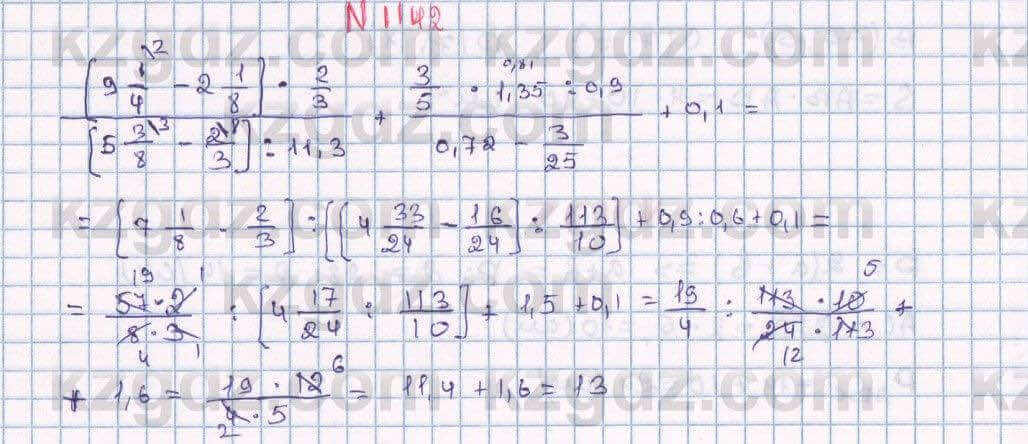 N 1142
[9 1/4 \2 - 2 1/8] · 2/3 / [5 3/8 \3 - 2/3 \8] : 11,3 + 3/5 · 1,35 : 0,9 / 0,72 - 3/25 + 0,1 =
0,81
= [7 1/8 · 2/3] : [[4 33/24 - 16/24] : 113/10] + 0,9 : 0,6 + 0,1 =
= 57 · 2 / 8 · 3 : [4 17/24 : 113/10] + 1,5 + 0,1 = 19/4 : 113 · 10 / 24 · 113 +
19 1 4 1 5 12
+ 1,6 = 19 · 12 / 4 · 5 = 11,4 + 1,6 = 13
6 2
kzgdz.com